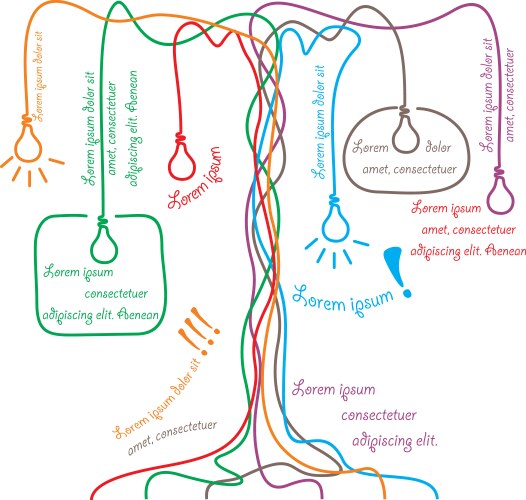 Lorem ipsum dolor sit
Lorem ipsum dolor sit
amet, consectetuer
adipiscing elit. Aenean
Lorem ipsum
Lorem ipsum dolor sit
Lorem dolor
amet, consectetuer
Lorem ipsum dolor sit
amet, consectetuer
Lorem ipsum
amet, consectetuer
adipiscing elit. Aenean
Lorem ipsum
consectetuer
adipiscing elit. Aenean
Lorem ipsum!
Lorem ipsum dolor sit!!!
amet, consectetuer
Lorem ipsum
consectetuer
adipiscing elit.